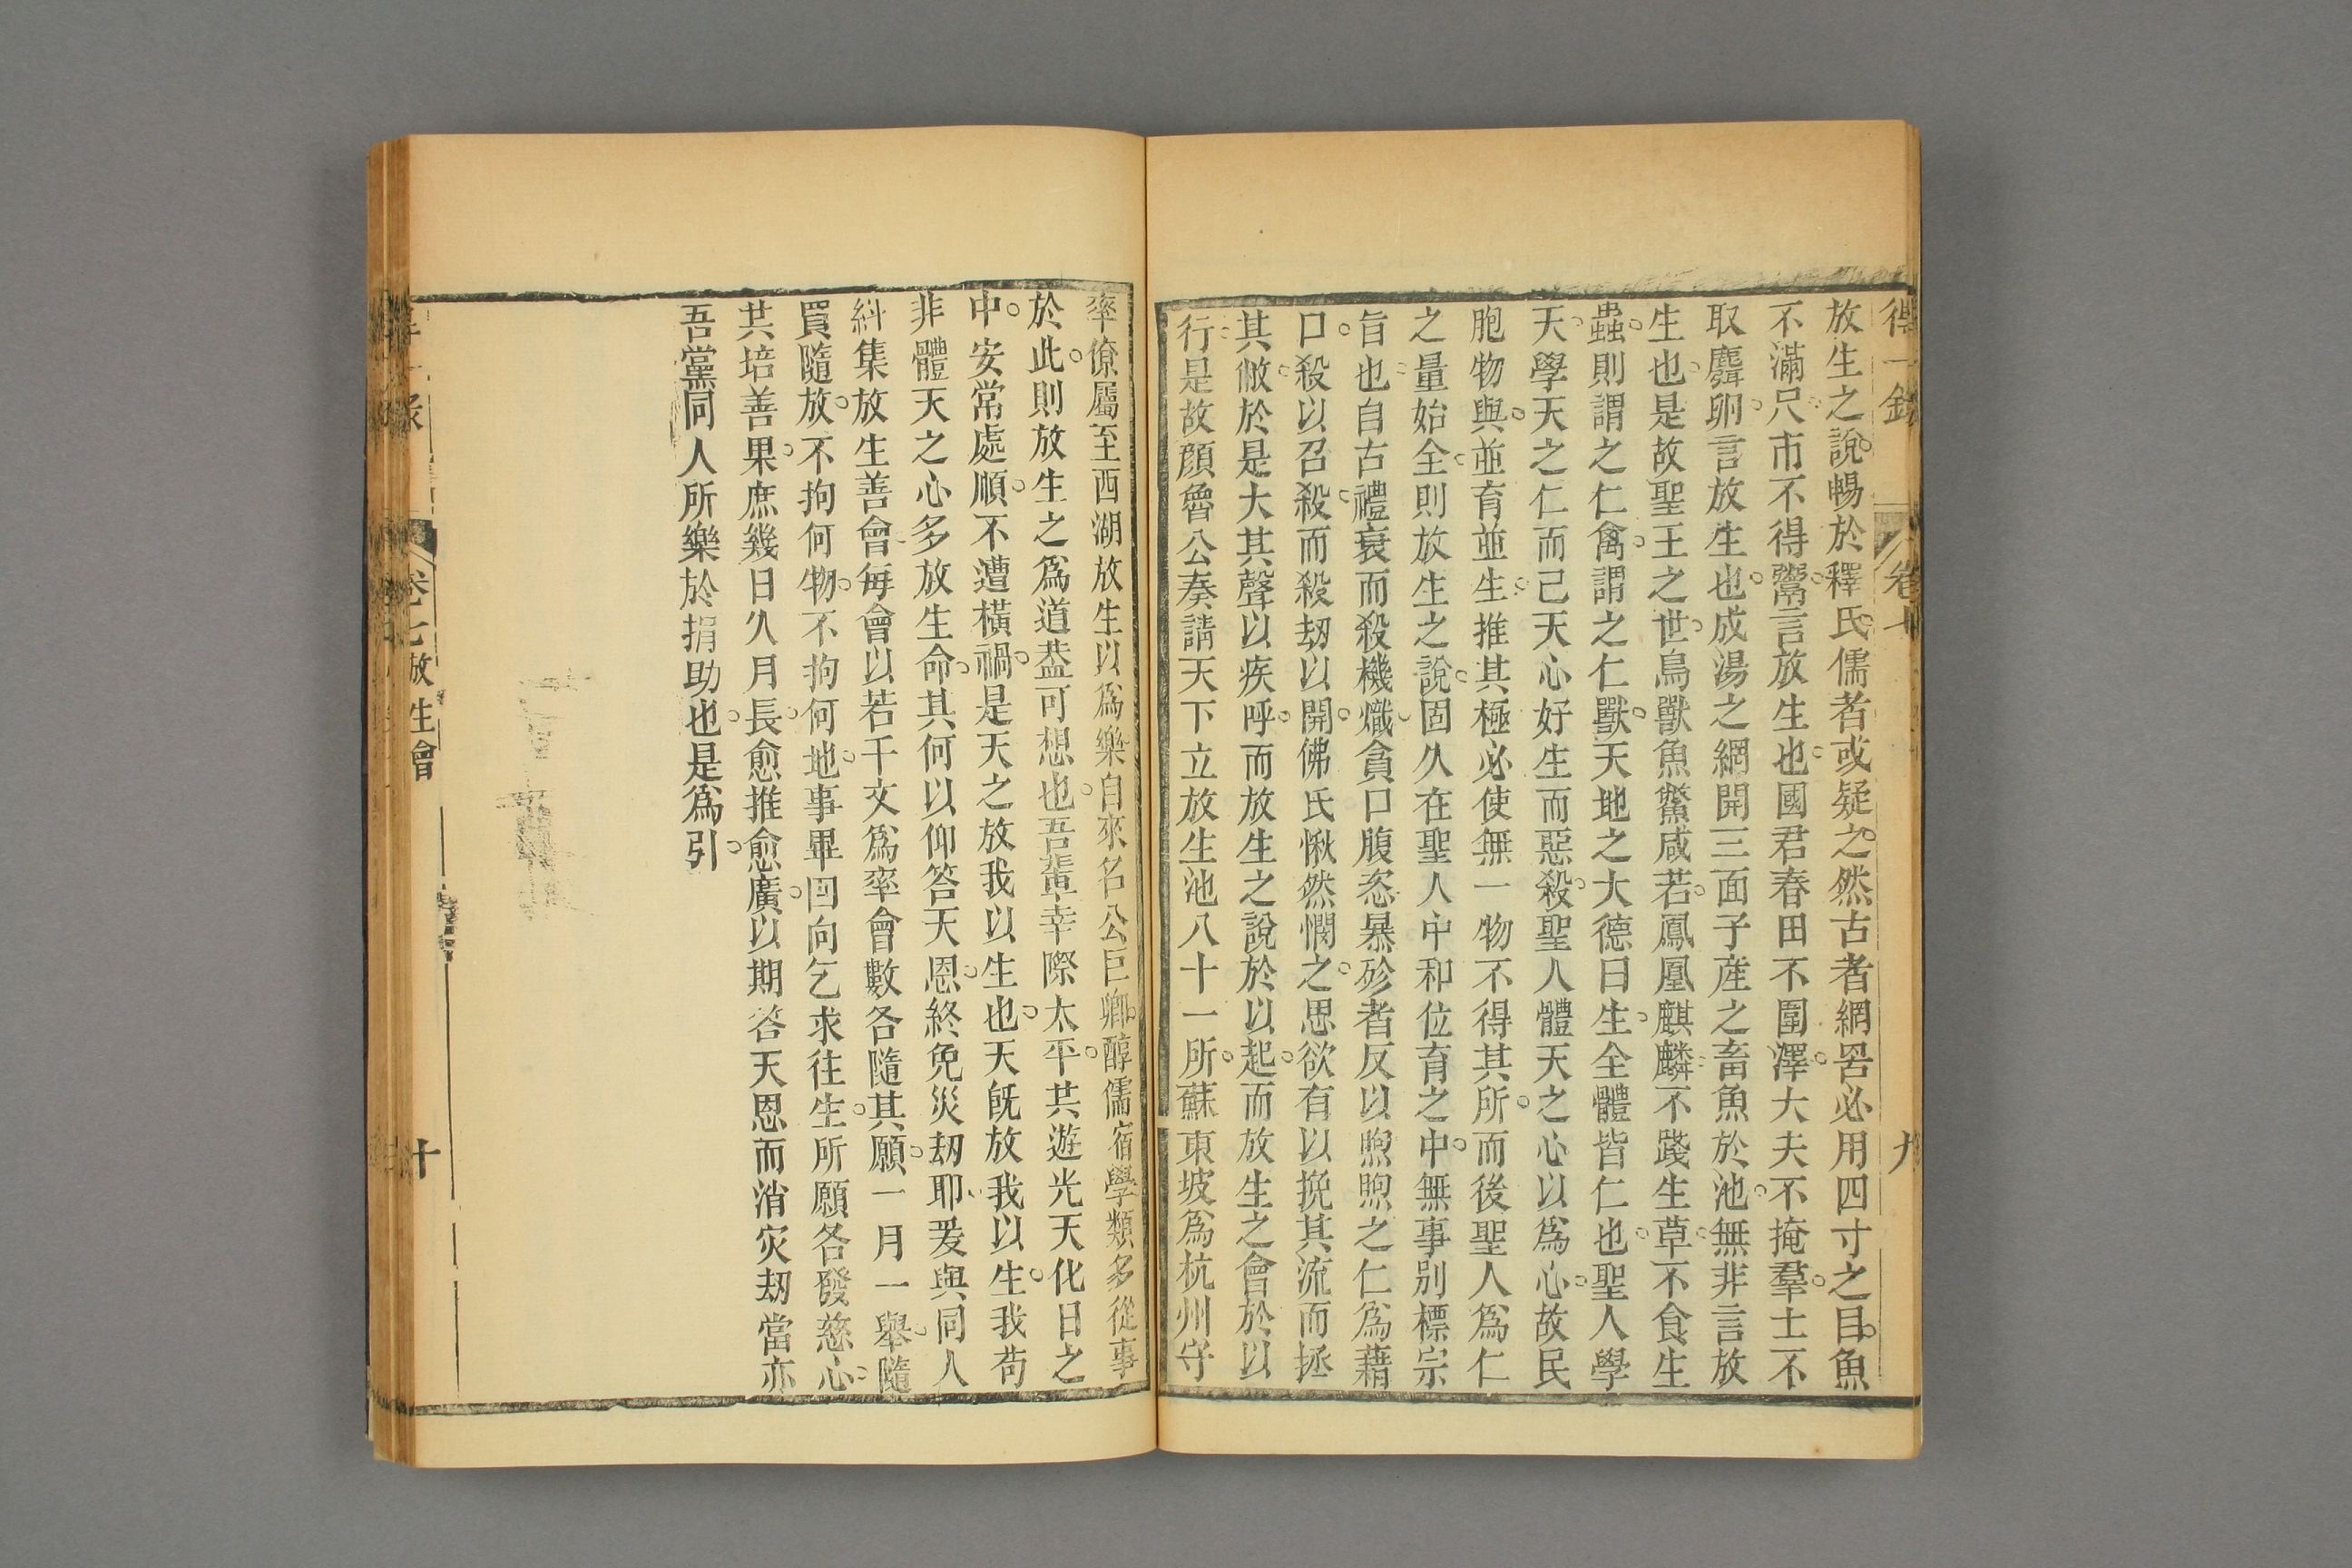 得一錄 卷七 九
放生之說暢於釋氏儒者或疑之然古者網罟必用四寸之目魚
不滿尺市不得鬻言放生也國君春田不圍澤大夫不掩羣士不
取麛卵言放生也成湯之網開三面子產之畜魚於池無非言放
生也是故聖王之世鳥獸魚鱉咸若鳳凰麒麟不踐生草不食生
蟲則謂之仁禽謂之仁獸天地之大德曰生全體皆仁也聖人學
天學天之仁而已天心好生而惡殺聖人體天之心以爲心故民
胞物與並育並生推其極必使無一物不得其所而後聖人爲仁
之量始全則放生之說固久在聖人中和位育之中無事別標宗
旨也自古禮衰而殺機熾貪口腹恣暴殄者反以煦煦之仁爲藉
口殺以召殺而殺劫以開佛氏愀然憫之思欲有以挽其流而拯
其敝於是大其聲以疾呼而放生之說於以起而放生之會於以
行是故顏魯公奏請天下立放生池八十一所蘇東坡爲杭州守
率僚屬至西湖放生以爲樂自來名公巨卿醇儒宿學類多從事
於此則放生之爲道葢可想也吾輩幸際太平共遊光天化日之
中安常處順不遭橫禍是天之放我以生也天旣放我以生我苟
非體天之心多放生命其何以仰答天恩終免災劫耶爰與同人
糾集放生善會每會以若干文爲率會數各隨其願一月一舉隨
買隨放不拘何物不拘何地事畢回向乞求往生所願各發慈心
共培善果庶幾日久月長愈推愈廣以期答天恩而消灾劫當亦
吾黨同人所樂於捐助也是爲引
卷七放生會 十